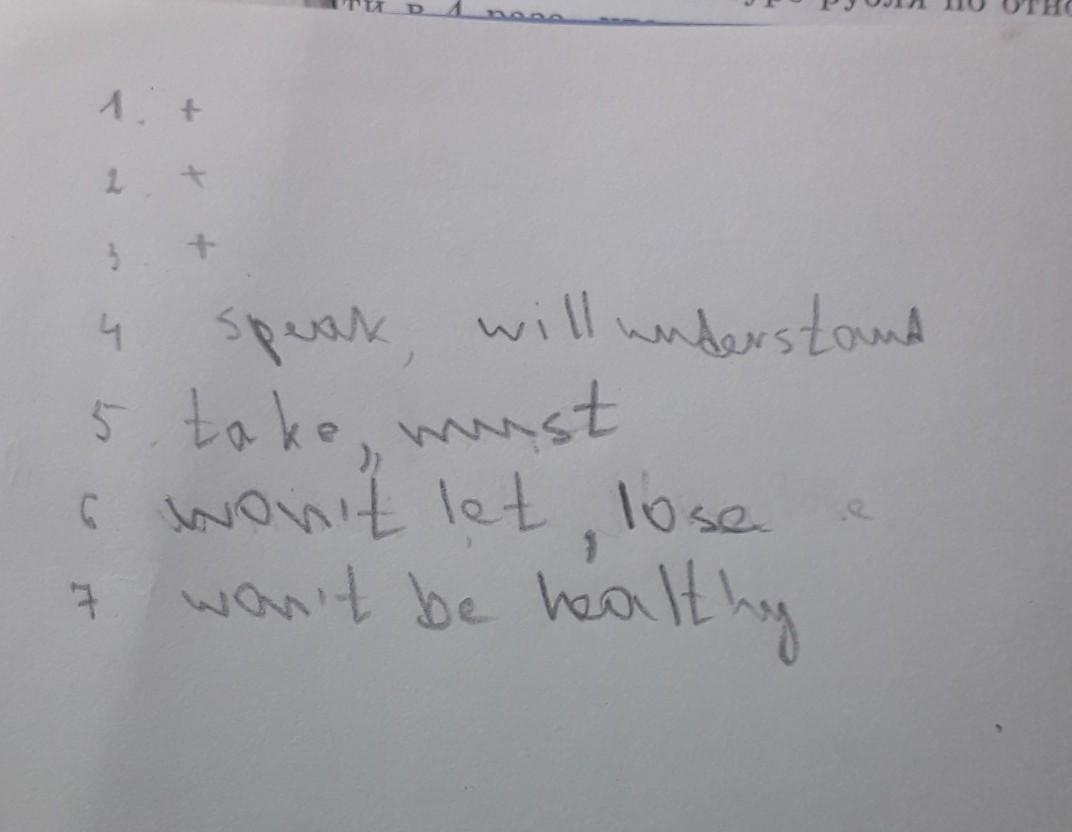 по отно
1. +
2. +
3 +
4 speak, will understand
5. take, must
6 won't let, lose
7 won't be healthy